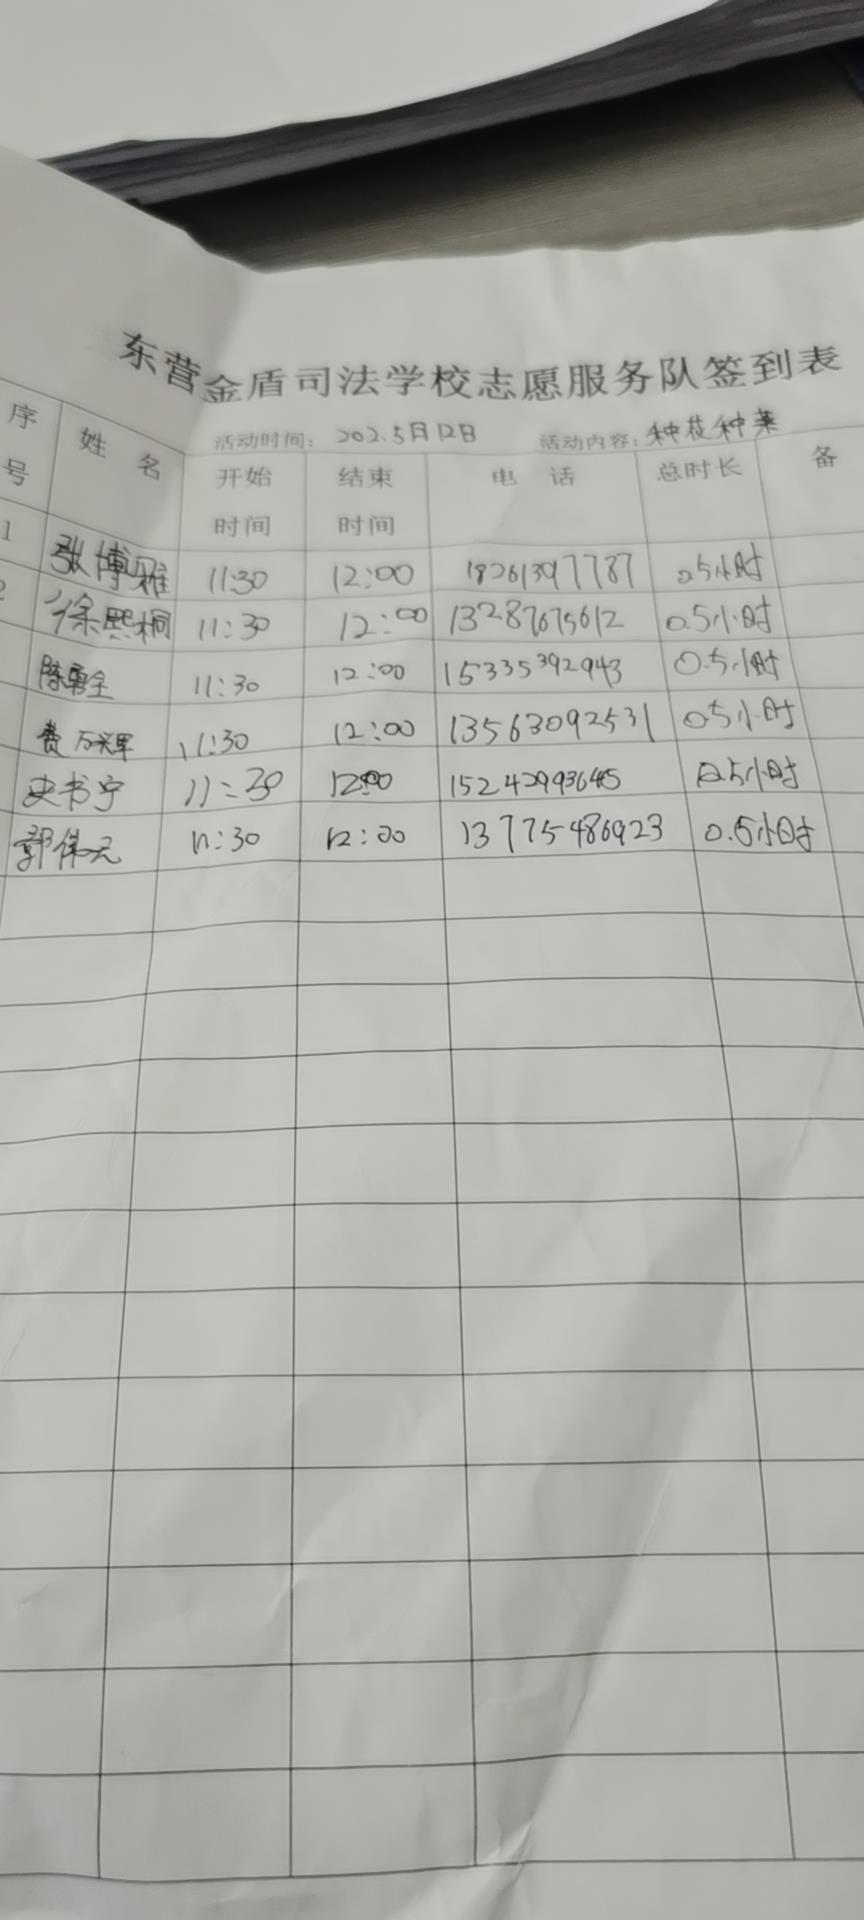 东营金盾司法学校志愿服务队签到表
活动时间: 202.5月12日 活动内容: 种花种菜
序号 姓名 开始时间 结束时间 电话 总时长 备
1 张博雅 11:30 12:00 18261397787 0.5小时
2 徐熙桐 11:30 12:00 13287675612 0.5小时
陈勇全 11:30 12:00 15335392943 0.5小时
费万辉 11:30 12:00 13563092531 0.5小时
史书宁 11:30 12:00 15242993645 0.5小时
郭伟元 11:30 12:00 13775486923 0.5小时